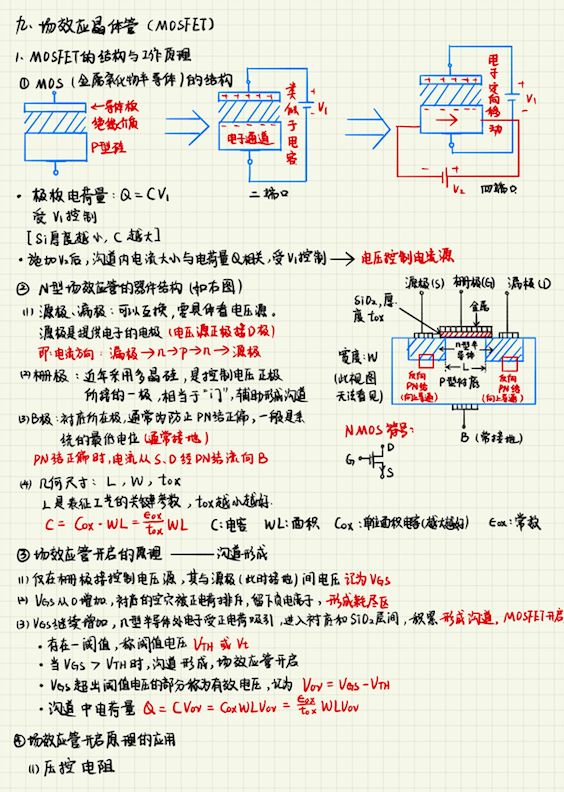 九. 场效应晶体管 (MOSFET)
1. MOSFET的结构与工作原理
① MOS (金属氧化物半导体) 的结构
←导体板
绝缘介质
P型硅
++++++
- - - - -
电子通道
类似于电容
+
-
V₁
二端口
++++++
- - - - -
电子定向移动
+
-
V₁
- +
V₂
四端口
· 极板电荷量: Q = CV₁
受 V₁ 控制
[Si厚度越小, C 越大]
· 施加V₂后, 沟道内电流大小与电荷量Q相关, 受V₁控制 → 电压控制电流源
② N型场效应管的器件结构 (如右图)
(1) 源极、漏极: 可以互换, 需具体看电压源。
源极是提供电子的电极 (电压源正极接D极)
即: 电流方向: 漏极→n→P→n→源极
(2) 栅极: 近年采用多晶硅, 是控制电压正极
所接的一极, 相当于"门", 辅助形成沟道
(3) B极: 衬底所在极, 通常为防止PN结正偏, 一般是系
统的最低电位 (通常接地)
PN结正偏时, 电流从S、D经PN结流向B
源极(S) 栅极(G) 漏极(D)
SiO₂, 厚度tox
金属
n型半导体
L
P型衬底
反向PN结(向上导通)
反向PN结(向上导通)
宽度: W
(此视图无法看见)
B (常接地)
NMOS 符号:
G
D
S
(4) 几何尺寸: L, W, tox
L是表征工艺的关键参数, tox越小越好.
C = Cox · WL = εox/tox WL C: 电容 WL: 面积 Cox: 单位面积电容(越大越好) εox: 常数
③ 场效应管开启的原理 —— 沟道形成
(1) 仅在栅极接控制电压源, 其与源极 (此时接地) 间电压 记为VGS
(2) VGS从0增加, 衬底的空穴被正电荷排斥, 留下负电离子, 形成耗尽区
(3) VGS继续增加, n型半导体处电子受正电荷吸引, 进入衬底和SiO₂层间, 积累 形成沟道, MOSFET开启
· 存在一阈值, 称阈值电压 VTH 或 Vt
· 当VGS > VTH时, 沟道形成, 场效应管开启
· VGS超出阈值电压的部分称为有效电压, 记为 Vov = VGS - VTH
· 沟道中电荷量 Q = CVov = CoxWLVov = εox/tox WLVov
④ 场效应管开启原理的应用
(1) 压控电阻